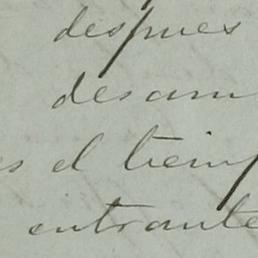 despues
desam
es el tiemp
entrante